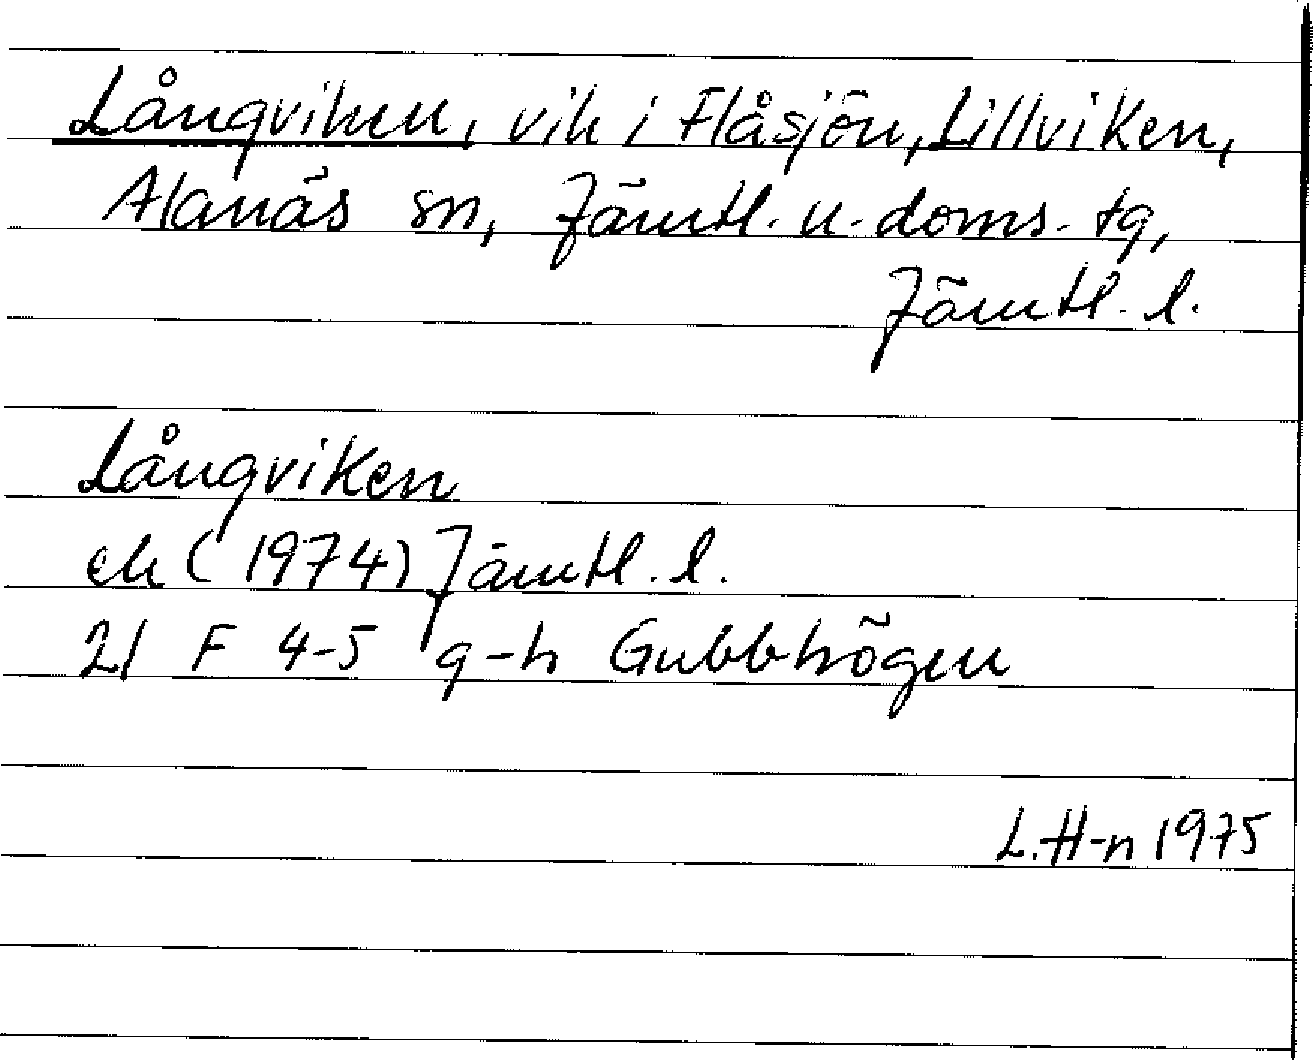 Långviken, vik i Flåsjön, Lillviken,
Alanäs sn, Jämtl. n. doms. tg,
Jämtl. l.
Långviken
ek (1974) Jämtl. l.
21 F 4-5 g-h Gubbhögen
L. H-n 1975